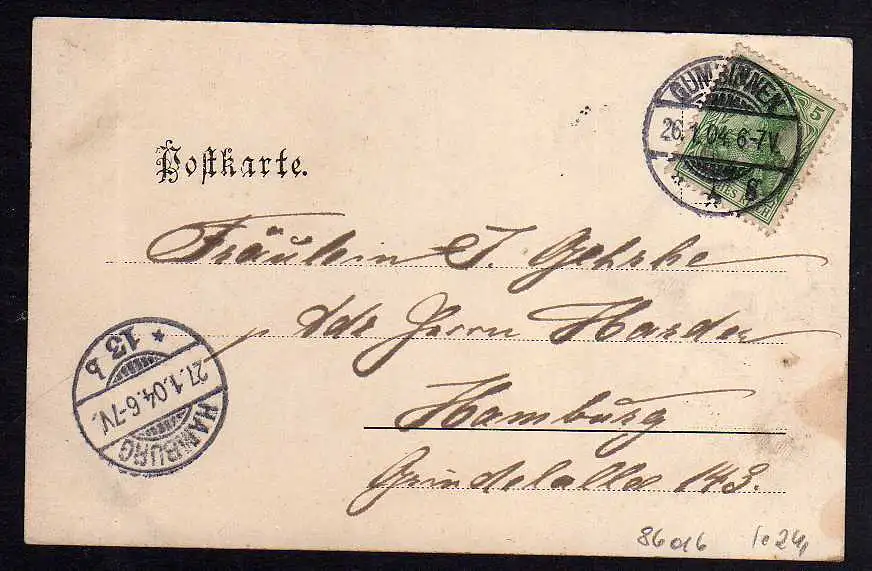 GUMBINNEN
26.1.04. 6-7V.
5
Postkarte.
Fräulein J. Gehrke
Adr Herrn Harder
Hamburg
Grindelallee 143.
* 13 b
27.1.04. 6-7V.
HAMBURG
86016